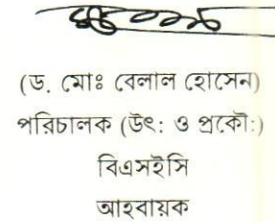 (ড. মোঃ বেলাল হোসেন)
পরিচালক (উৎ: ও প্রকৌ:)
বিএসইসি
আহবায়ক